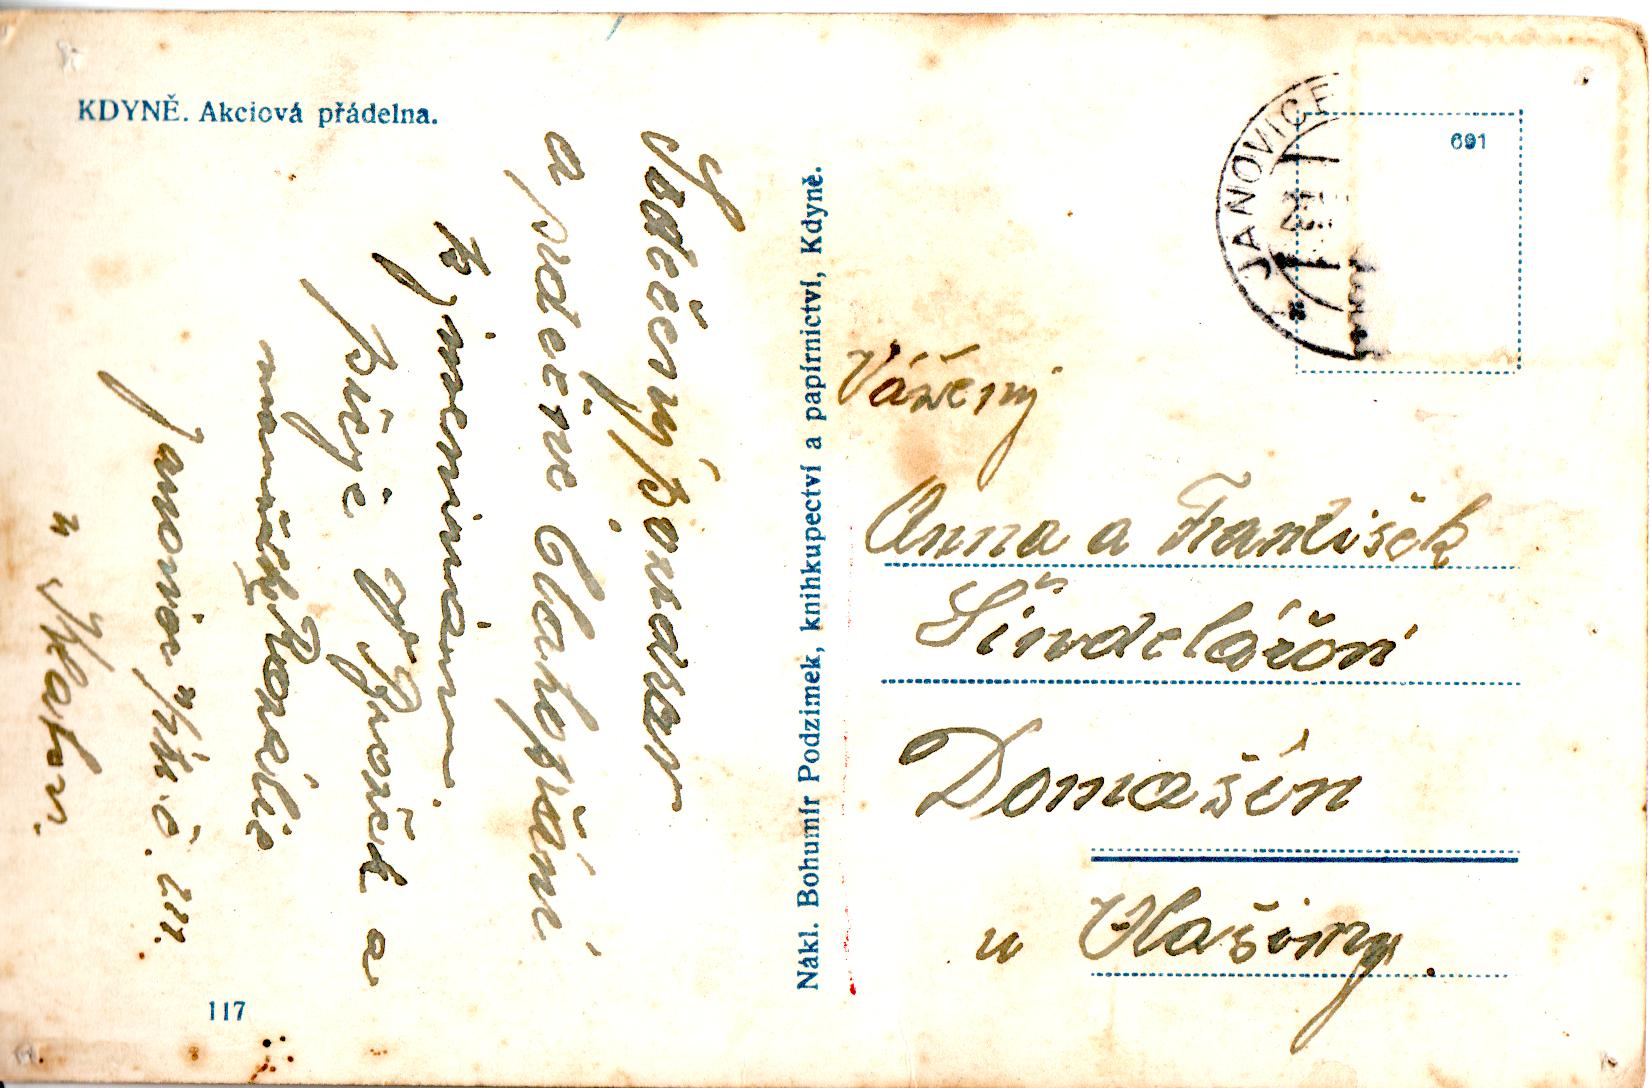 KDYNĚ. Akciová přádelna.
Srdečný pozdrav
a srdečné blahopřání
k jmeninám.
přeje V. Brožek a
manželk. Rozálie
Janovice n/Úhl. č.
u Klatov.
117
Nákl. Bohumír Podzimek, knihkupectví a papírnictví, Kdyně.
JANOVICE
691
Vážený
Anna a František
Šindelářovi
Domašín
u Vlašimy.